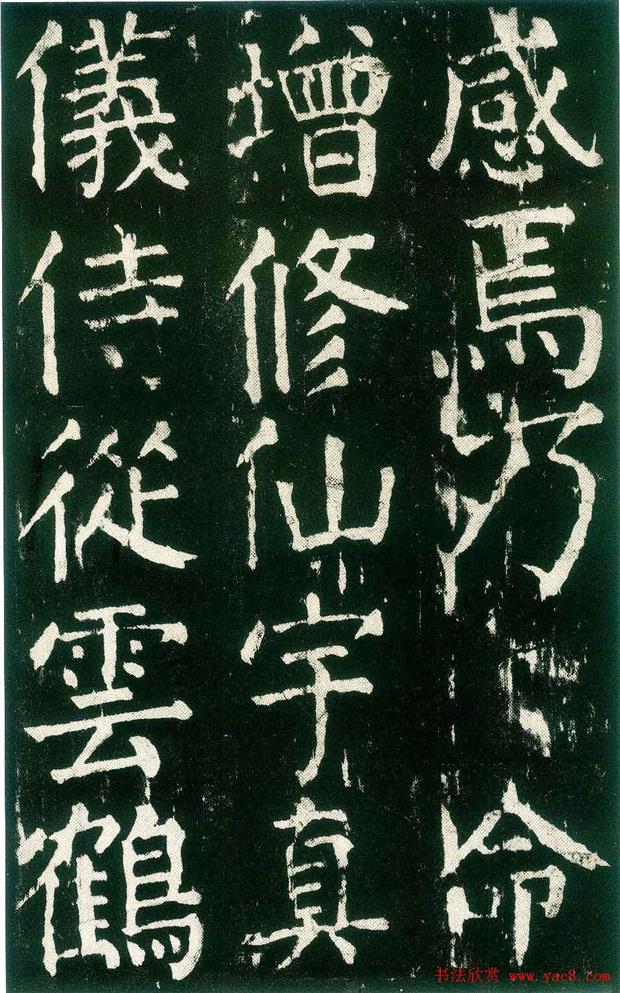 感焉乃命
增修仙宇真
儀侍從雲鶴
书法欣赏 www.yac8.com